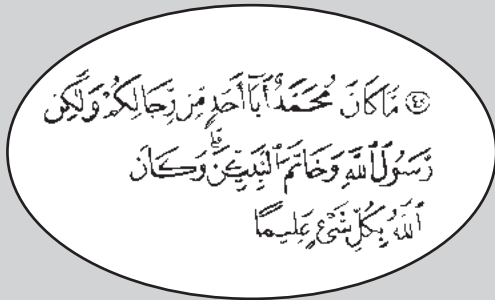 مَّا كَانَ مُحَمَّدٌ أَبَآ أَحَدٍ مِّن رِّجَالِكُمْ وَلَٰكِن
رَّسُولَ ٱللَّهِ وَخَاتَمَ ٱلنَّبِيِّـۧنَ ۗ وَكَانَ
ٱللَّهُ بِكُلِّ شَىْءٍ عَلِيمًا